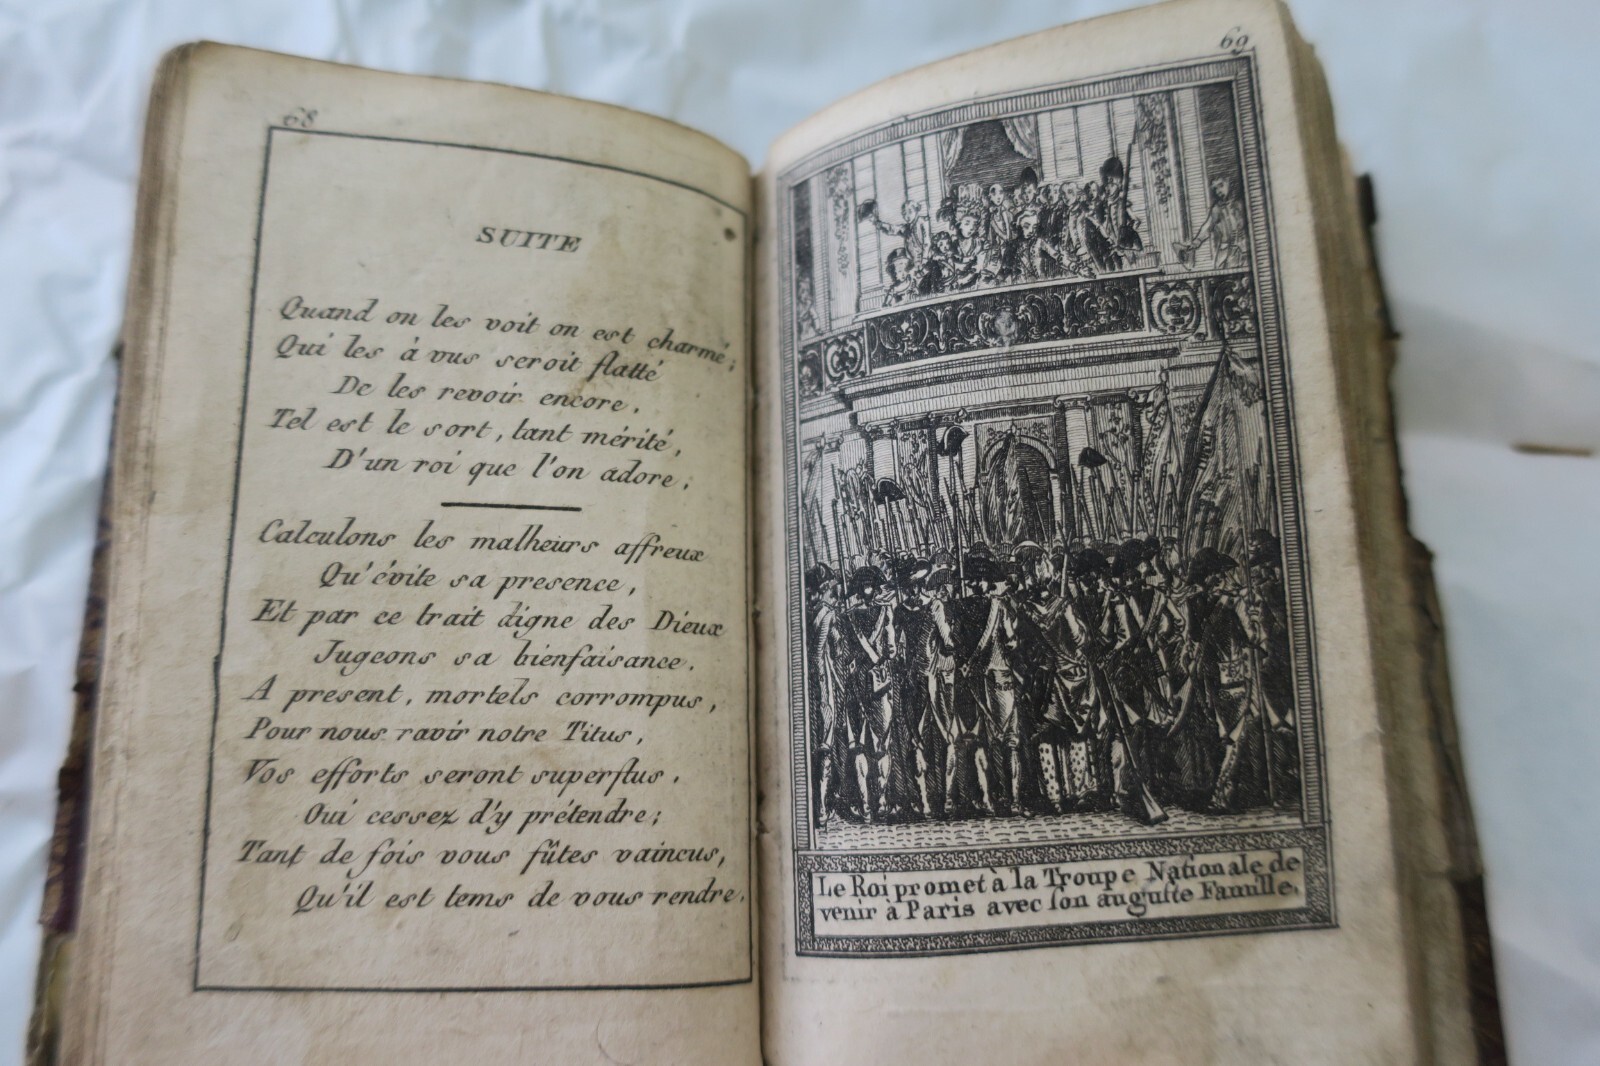 68
SUITE
Quand on les voit on est charmé;
Qui les à vus seroit flatté
De les revoir encore.
Tel est le sort, tant mérité,
D'un roi que l'on adore;
Calculons les malheurs affreux
Qu'évite sa presence,
Et par ce trait digne des Dieux
Jugeons sa bienfaisance.
A present, mortels corrompus,
Pour nous ravir notre Titus,
Vos efforts seront superflus.
Oui cessez d'y prétendre;
Tant de fois vous fûtes vaincus,
Qu'il est tems de vous rendre.
69
Le Roi promet à la Troupe Nationale de
venir à Paris avec ſon auguſte Famille.